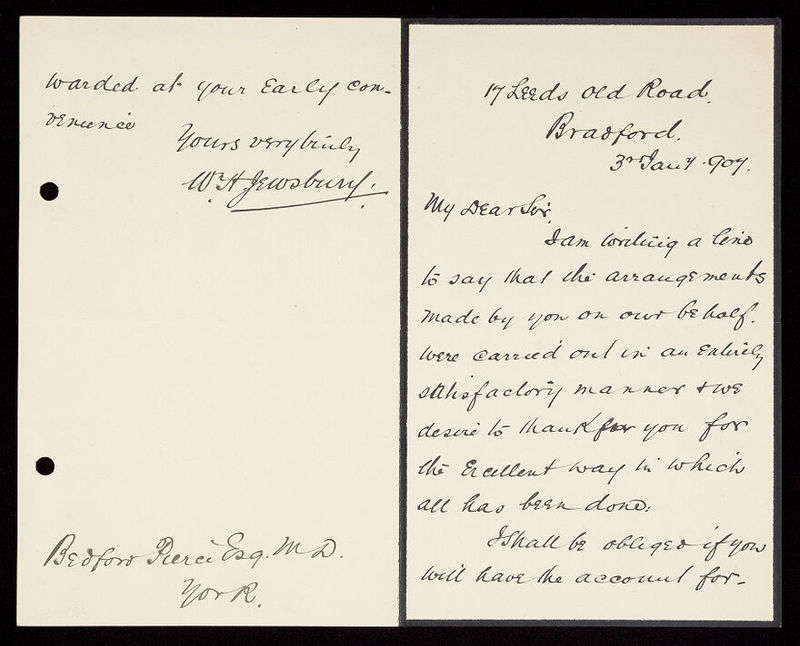 17 Leeds Old Road.
Bradford.
3rd Jany. 907.
My Dear Sir,
I am writing a line
to say that the arrangements
made by you on our behalf.
were carried out in an Entirely
satisfactory manner + we
desire to thank for you for
the Excellent way in which
all has been done:
I Shall be obliged if you
will have the account for-
warded at your Early con-
venience
Yours very truly
Wm H Jewsbury.
Bedford Pierce Esq. M D.
York.